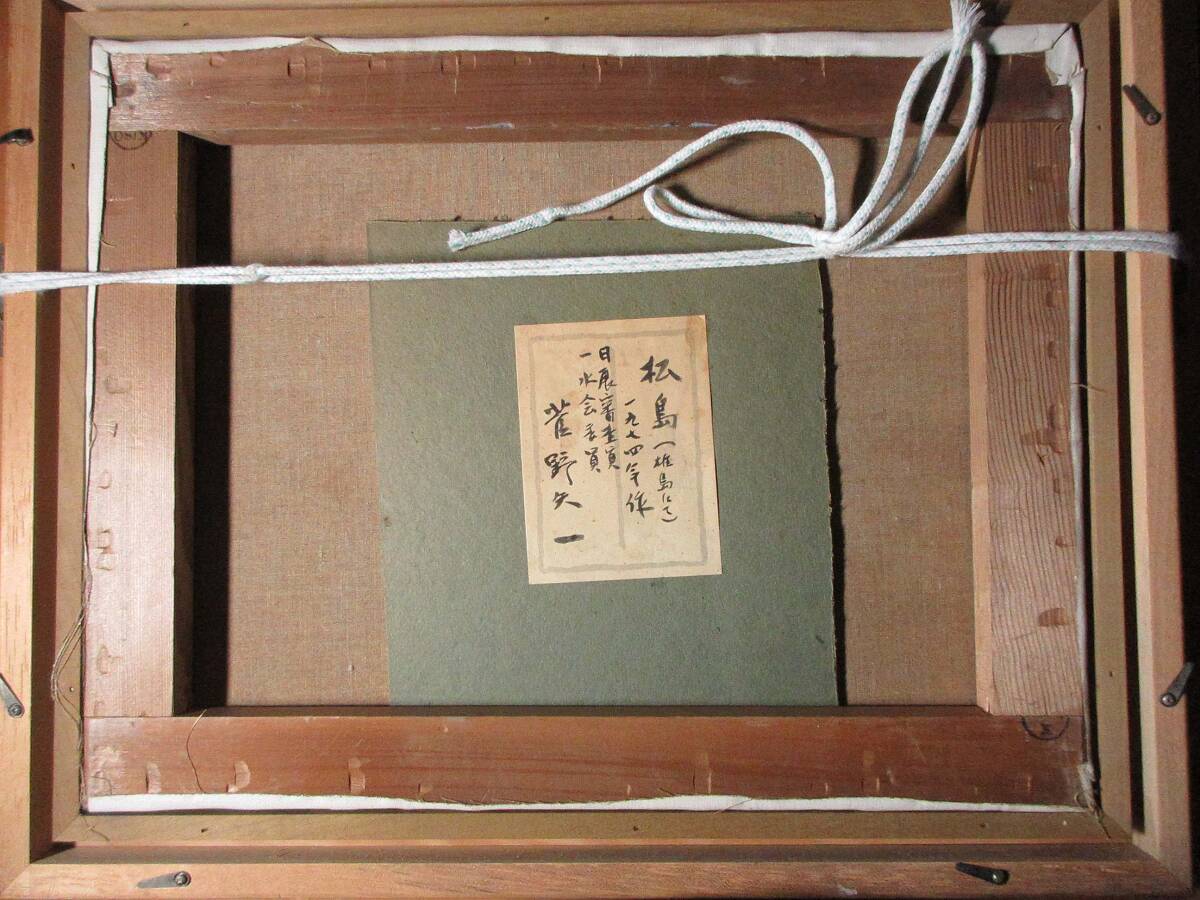 松島(雄島にて)
一九七四年作
日展審査員
一水会委員
菅野矢一